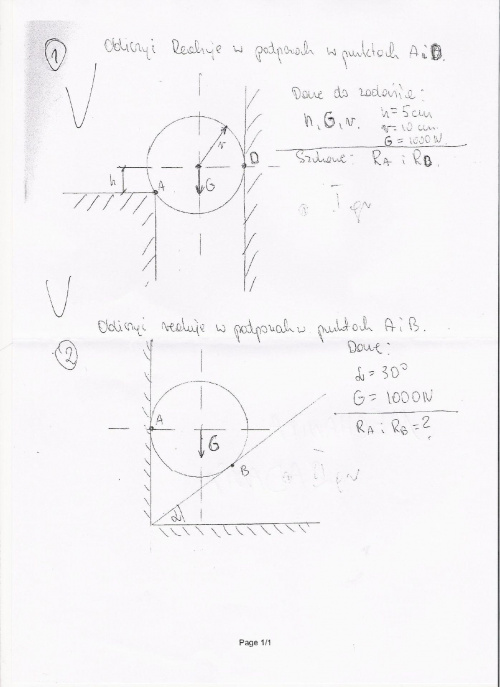 1 Obliczyć Reakcje w podporach w punktach A i D.
Dane do zadania:
h, G, r. h = 5 cm
r = 10 cm
G = 1000 N
Szukane: RA i RD
r
D
h
A
G
Obliczyć reakcje w podporach w punktach A i B.
2
Dane:
α = 30°
G = 1000 N
RA i RB = ?
A
G
B
α
Page 1/1